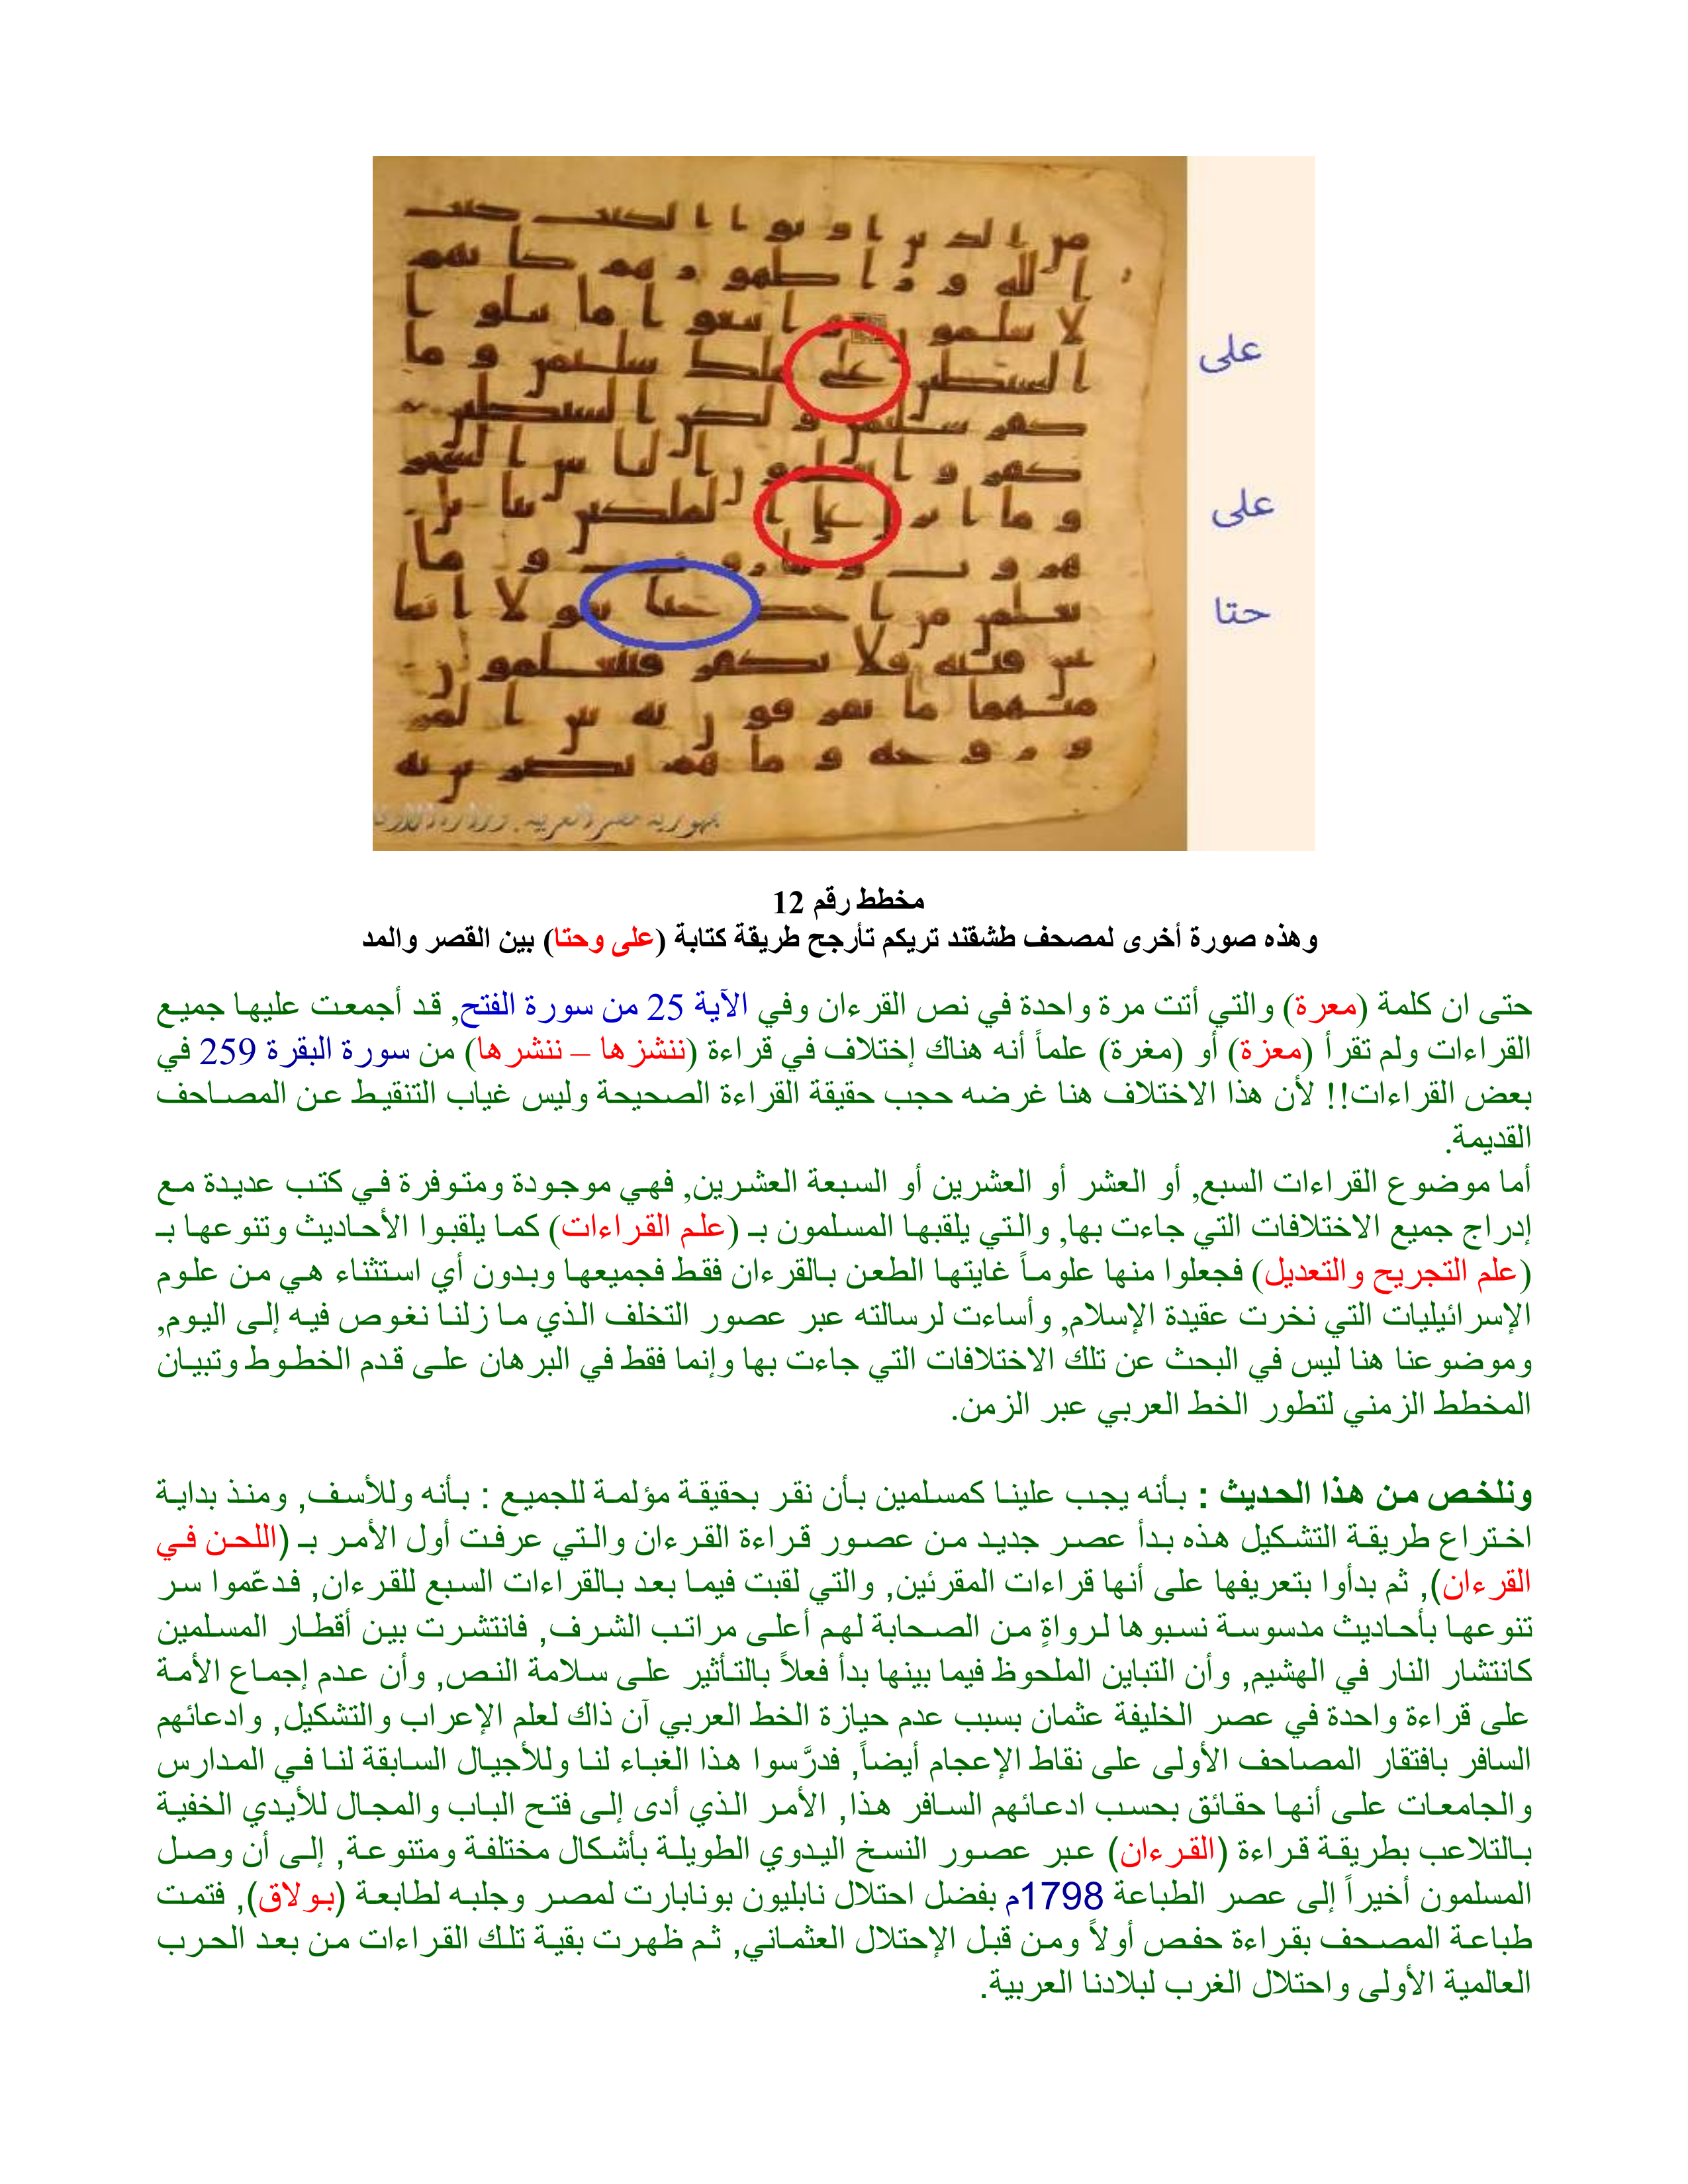 من الذين اوتوا الكتب كتب
الله ورا ظهورهم كانهم
لا يعلمون واتبعوا ما تتلوا
الشيطين على ملك سليمن وما
كفر سليمن ولكن الشيطين
كفروا يعلمون الناس السحر
وما انزل على الملكين ببابل
هروت ومروت وما
يعلمن من احد حتا يقولا انما
نحن فتنه فلا تكفر فيتعلمون
منهما ما يفرقون به بين المر
وزوجه وما هم بضرين به
على
على
حتا
جمهورية مصر العربية . وزارة الأوقا
مخطط رقم 12
وهذه صورة أخرى لمصحف طشقتند تريكم تأرجح طريقة كتابة (على وحتا) بين القصر والمد
حتى ان كلمة (معرة) والتي أتت مرة واحدة في نص القرءان وفي الآية 25 من سورة الفتح, قد أجمعت عليها جميع
القراءات ولم تقرأ (معزة) أو (مغرة) علماً أنه هناك إختلاف في قراءة (ننشزها – ننشرها) من سورة البقرة 259 في
بعض القراءات!! لأن هذا الاختلاف هنا غرضه حجب حقيقة القراءة الصحيحة وليس غياب التنقيط عن المصاحف
القديمة.
أما موضوع القراءات السبع, أو العشر أو العشرين أو السبعة العشرين, فهي موجودة ومتوفرة في كتب عديدة مع
إدراج جميع الاختلافات التي جاءت بها, والتي يلقبها المسلمون بـ (علم القراءات) كما يلقبوا الأحاديث وتنوعها بـ
(علم التجريح والتعديل) فجعلوا منها علوماً غايتها الطعن بالقرءان فقط فجميعها وبدون أي استثناء هي من علوم
الإسرائيليات التي نخرت عقيدة الإسلام, وأساءت لرسالته عبر عصور التخلف الذي ما زلنا نغوص فيه إلى اليوم,
وموضوعنا هنا ليس في البحث عن تلك الاختلافات التي جاءت بها وإنما فقط في البرهان على قدم الخطوط وتبيان
المخطط الزمني لتطور الخط العربي عبر الزمن.
ونلخص من هذا الحديث : بأنه يجب علينا كمسلمين بأن نقر بحقيقة مؤلمة للجميع : بأنه وللأسف, ومنذ بداية
اختراع طريقة التشكيل هذه بدأ عصر جديد من عصور قراءة القرءان والتي عرفت أول الأمر بـ (اللحن في
القرءان), ثم بدأوا بتعريفها على أنها قراءات المقرئين, والتي لقبت فيما بعد بالقراءات السبع للقرءان, فدعّموا سر
تنوعها بأحاديث مدسوسة نسبوها لرواةٍ من الصحابة لهم أعلى مراتب الشرف, فانتشرت بين أقطار المسلمين
كانتشار النار في الهشيم, وأن التباين الملحوظ فيما بينها بدأ فعلاً بالتأثير على سلامة النص, وأن عدم إجماع الأمة
على قراءة واحدة في عصر الخليفة عثمان بسبب عدم حيازة الخط العربي آن ذاك لعلم الإعراب والتشكيل, وادعائهم
السافر بافتقار المصاحف الأولى على نقاط الإعجام أيضاً, فدرَّسوا هذا الغباء لنا وللأجيال السابقة لنا في المدارس
والجامعات على أنها حقائق بحسب ادعائهم السافر هذا, الأمر الذي أدى إلى فتح الباب والمجال للأيدي الخفية
بالتلاعب بطريقة قراءة (القرءان) عبر عصور النسخ اليدوي الطويلة بأشكال مختلفة ومتنوعة, إلى أن وصل
المسلمون أخيراً إلى عصر الطباعة 1798م بفضل احتلال نابليون بونابارت لمصر وجلبه لطابعة (بولاق), فتمت
طباعة المصحف بقراءة حفص أولاً ومن قبل الإحتلال العثماني, ثم ظهرت بقية تلك القراءات من بعد الحرب
العالمية الأولى واحتلال الغرب لبلادنا العربية.